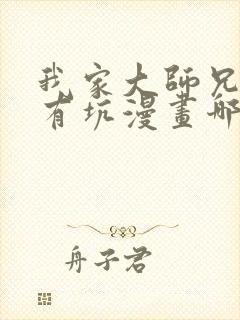 我家大師兄
有坑漫畫哪
舟子君